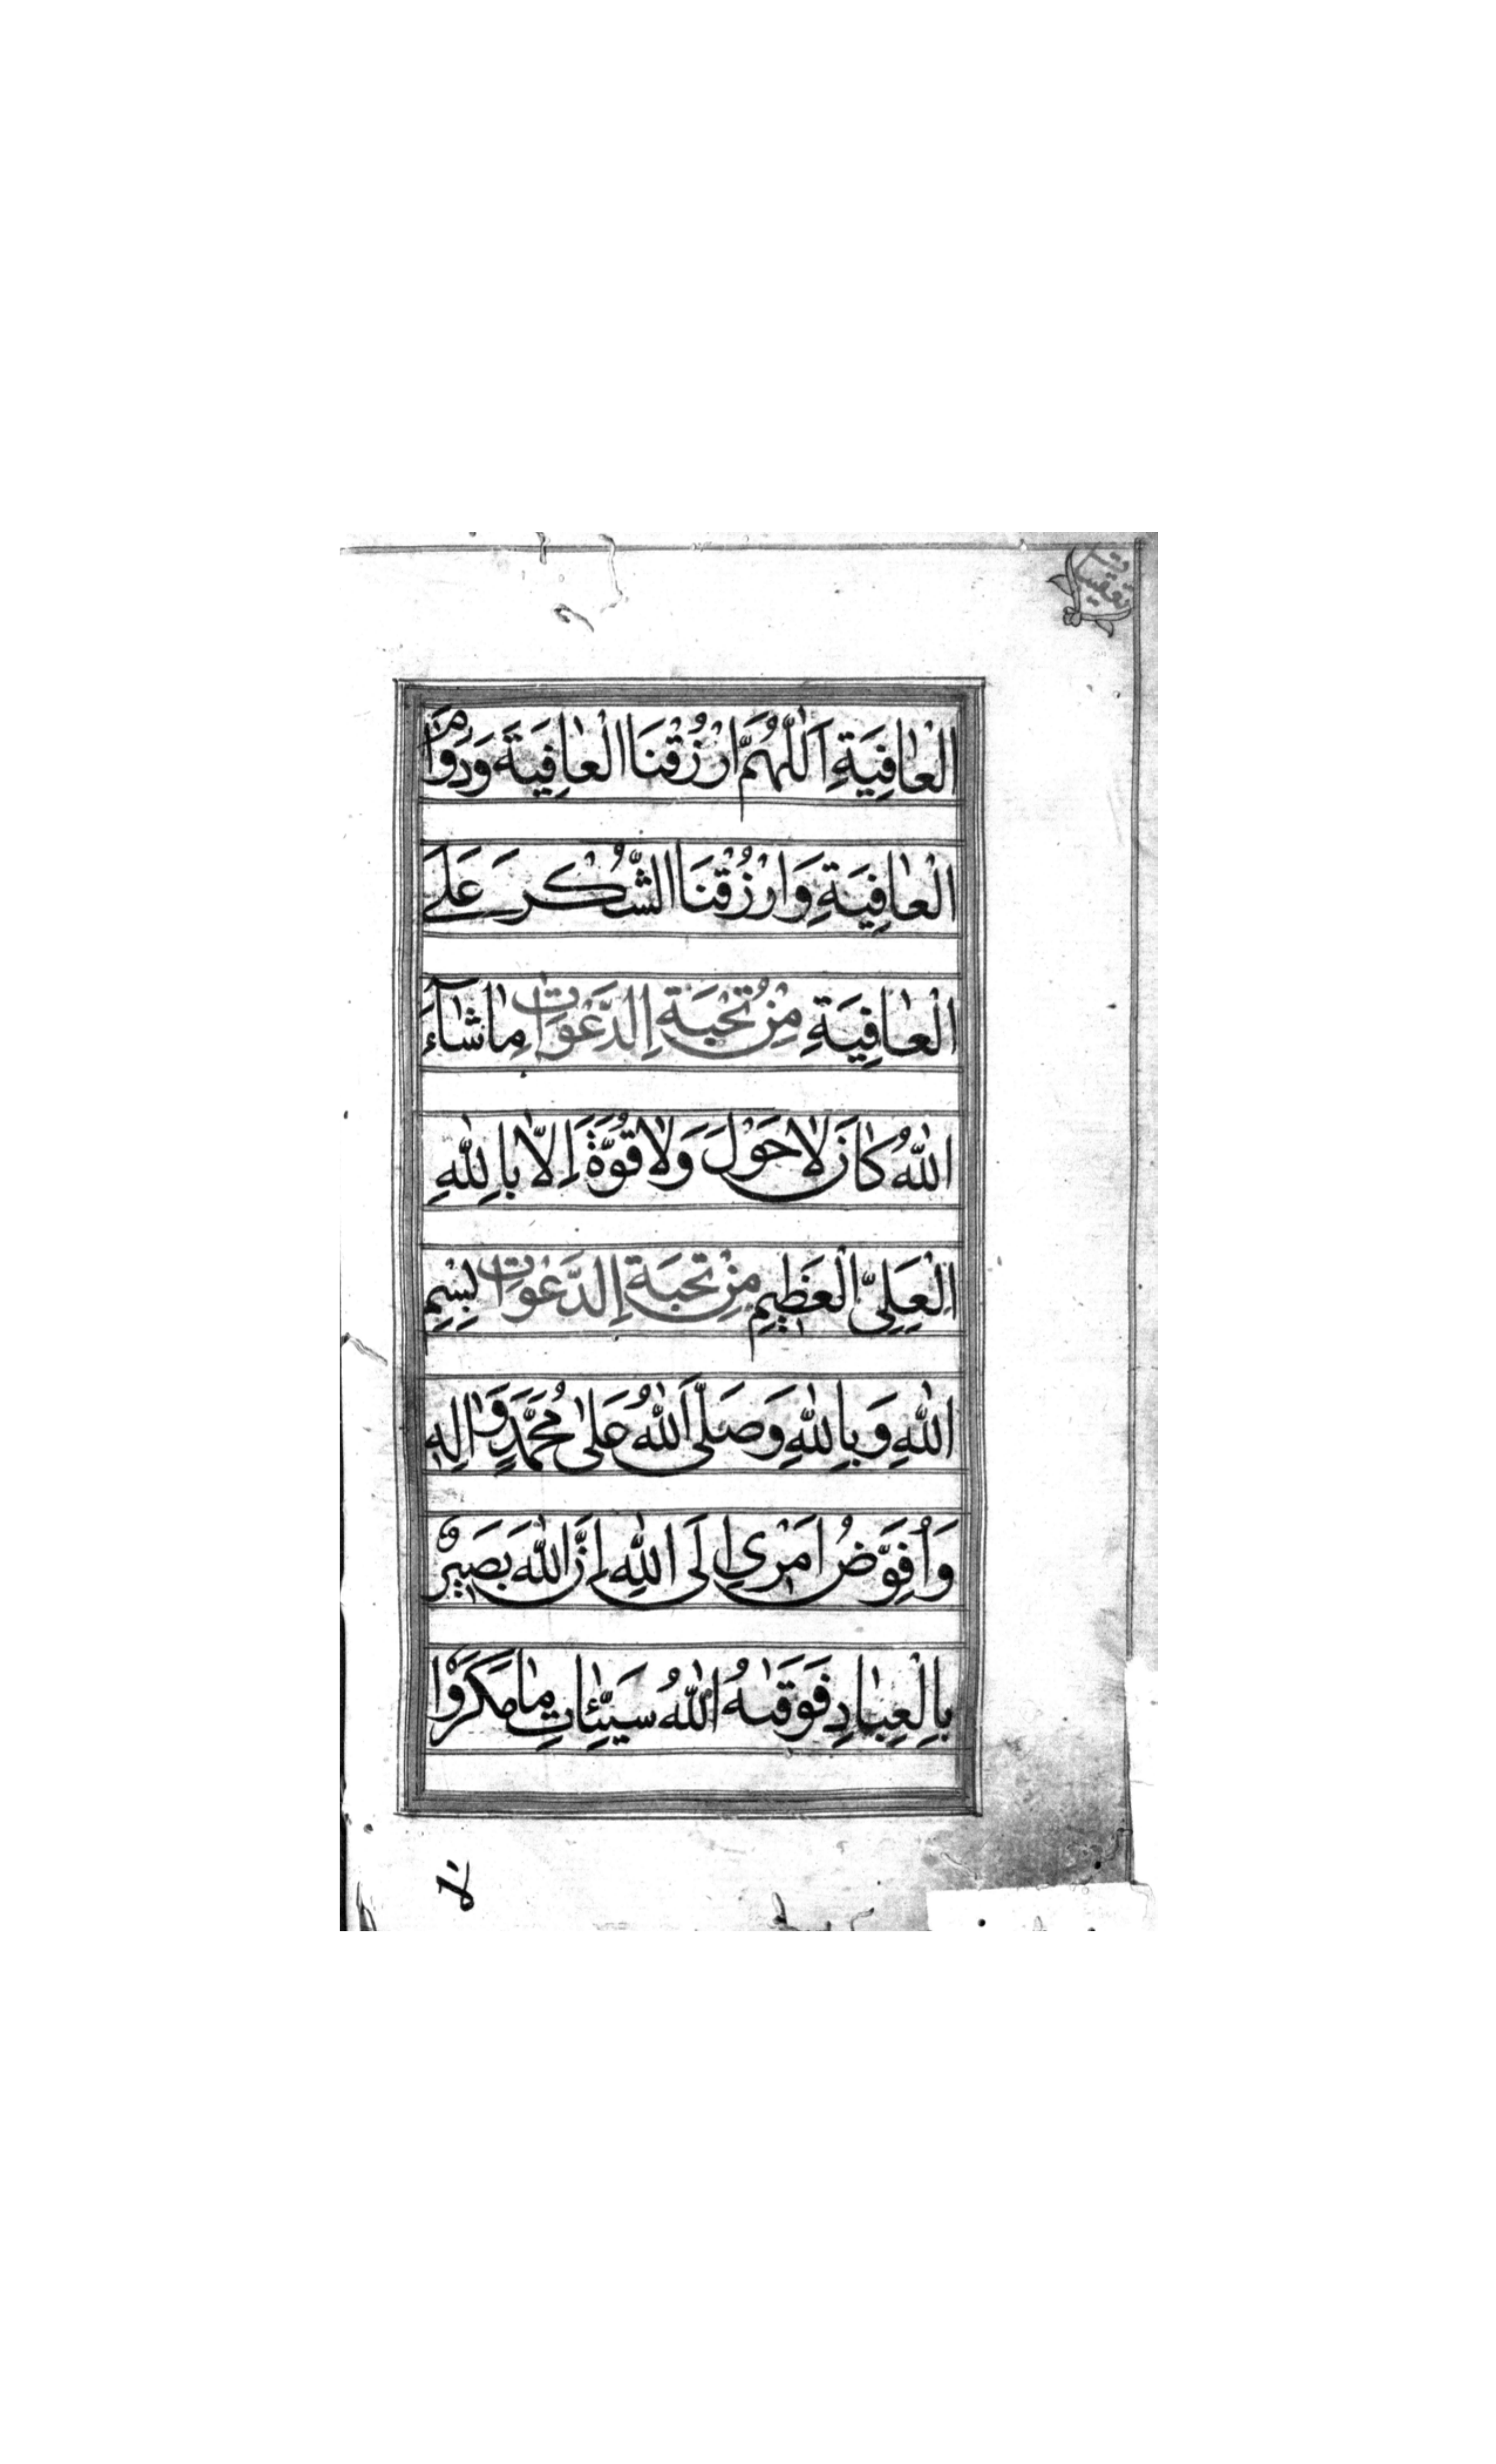 تعقیبات
الْعٰافِيَةِ اَللّٰهُمَّ ارْزُقْنَا الْعٰافِيَةَ وَدَوٰامَ
الْعٰافِيَةِ وَارْزُقْنَا الشُّكْرَ عَلَى
الْعٰافِيَةِ مِنْ نُخْبَةِ الدَّعَوٰاتِ مٰاشٰآءَ
اللّٰهُ كٰانَ لٰاحَوْلَ وَلٰا قُوَّةَ اِلّٰا بِاللّٰهِ
الْعَلِىِّ الْعَظٖيمِ مِنْ نُخْبَةِ الدَّعَوٰاتِ بِسْمِ
اللّٰهِ وَبِاللّٰهِ وَصَلَّى اللّٰهُ عَلٰى مُحَمَّدٍ وَاٰلِهٖ
وَاُفَوِّضُ اَمْرٖى اِلَى اللّٰهِ اِنَّ اللّٰهَ بَصٖيرٌ
بِالْعِبٰادِ فَوَقٰىهُ اللّٰهُ سَيِّئٰاتِ مٰا مَكَرُوْا
لَا